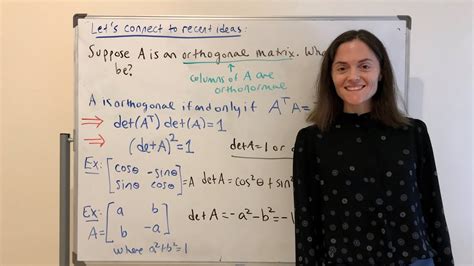 Let's connect to recent ideas:
Suppose A is an orthogonal matrix.
be?
columns of A are
orthonormal
A is orthogonal if and only if AᵀA=
⇒ det(Aᵀ) det(A)=1
⇒ (detA)²=1
detA=1 or
Ex: [cosθ -sinθ
sinθ cosθ]=A detA=cos²θ+sin²
Ex: A=[a b
b -a] detA=-a²-b²=-1
where a²+b²=1